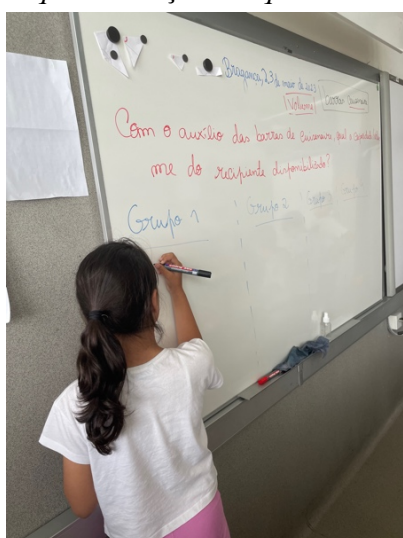 Bragança, 23 de maio de 2023
Volume barras Cuisenaire
Com o auxílio das barras de Cuisenaire, qual a
me do recipiente disponibilizado?
Grupo 1 Grupo 2 Grupo